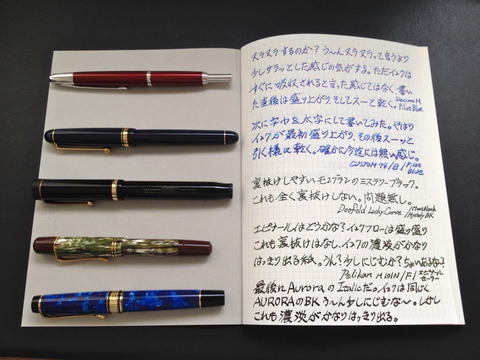 スラスラするのか?う〜んスラスラって言うより
少しサラッとした感じの気がする。ただインクは
すぐに吸収されると言った感じではなく書い
た直後は盛り上がり、そしてスーと乾く。 Decimo M
Pilot Blue
次に字巾を太字にして書いてみた。やはり
インクが最初盛り上がり、その後スーッと
引く様に乾く。確かに今迄には無い感じ。
CUSTOM 74/B/Pilot
BLUE
裏抜けしやすいモンブランのミステリーブラック。
これも全く裏抜けしない。問題無し。
Duofold Lucky Curve /Montblanc
Mystery BK
エピナールはどうかな?インクフローは盛り盛り
これも裏抜けはなし、インクの濃淡がかなり
はっきり出る紙。うん?少しにじむか?ちょいあるな?
Pelikan M101N/F/エピナール
セーラー
最後にAuroraのItalicだ。インクは同じく
AURORAのBK う〜ん少しにじむな〜。しかし
これも濃淡がかなりはっきり出る。